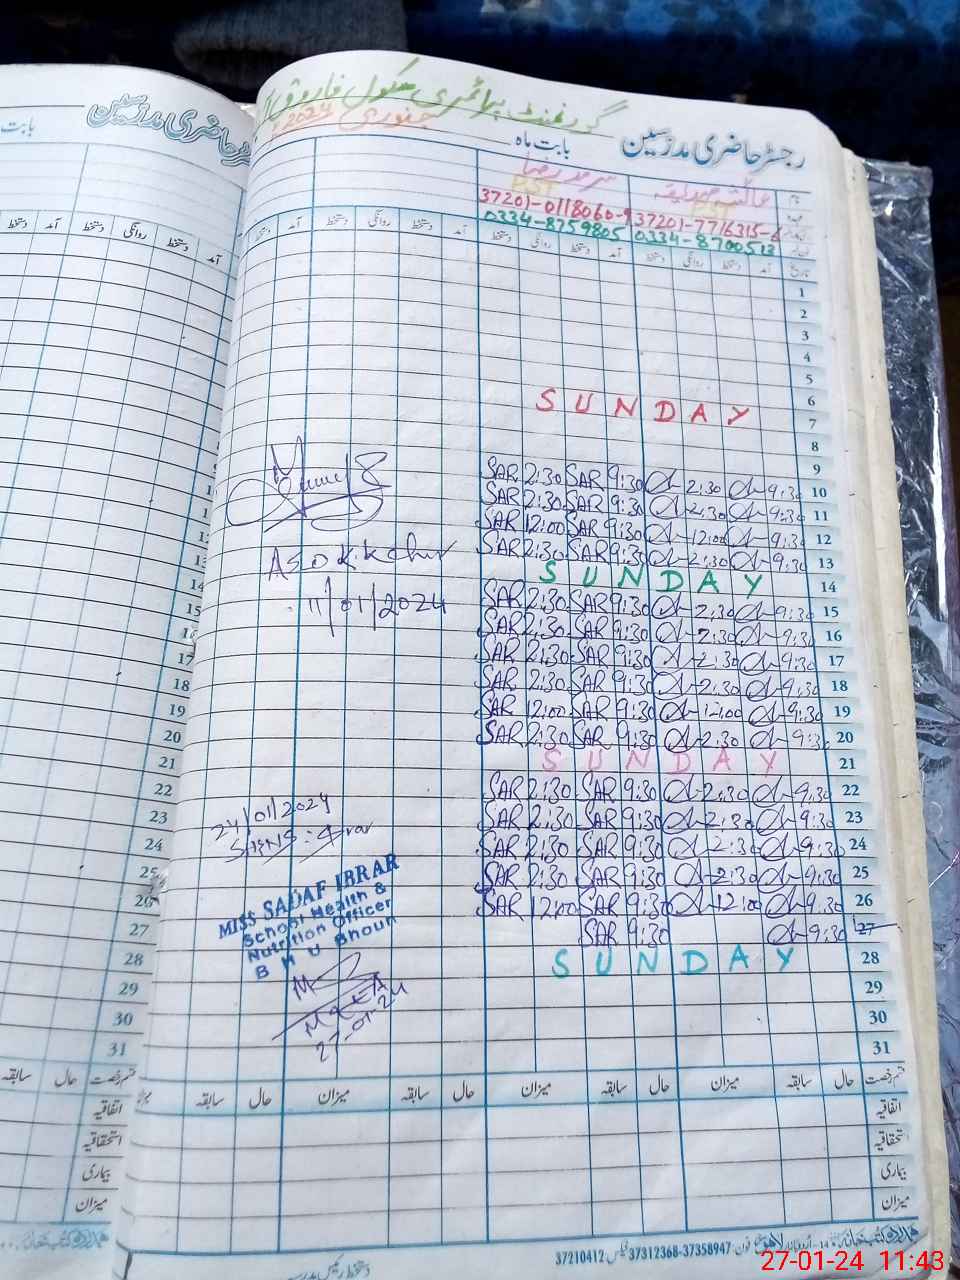 رجسٹر حاضری مدرسین
گورنمنٹ پرائمری سکول فاروقی
بابت ماہ
جنوری 2024
عائشہ صدیقہ
سرمد رضا
PST
37201-0118060-9
37201-7716315-6
0334-8759805
0334-8700513
تاریخ آمد دستخط روانگی دستخط آمد دستخط روانگی دستخط
1
2
3
4
5
6
SUNDAY
7
8
9
SAR 2:30 SAR 9:30 2:30 9:30 10
SAR 2:30 SAR 9:30 2:30 9:30 11
SAR 12:00 SAR 9:30 12:00 9:30 12
SAR 2:30 SAR 9:30 2:30 9:30 13
SUNDAY 14
SAR 2:30 SAR 9:30 2:30 9:30 15
SAR 2:30 SAR 9:30 2:30 9:30 16
SAR 2:30 SAR 9:30 2:30 9:30 17
SAR 2:30 SAR 9:30 2:30 9:30 18
SAR 12:00 SAR 9:30 12:00 9:30 19
SAR 2:30 SAR 9:30 2:30 9:30 20
SUNDAY 21
SAR 2:30 SAR 9:30 2:30 9:30 22
SAR 2:30 SAR 9:30 2:30 9:30 23
SAR 2:30 SAR 9:30 2:30 9:30 24
SAR 2:30 SAR 9:30 2:30 9:30 25
SAR 12:00 SAR 9:30 12:00 9:30 26
SAR 9:30 9:30 27
SUNDAY 28
29
30
31
11/01/2024
24/01/2024
MISS SADAF IBRAR
School Health &
Nutrition Officer
B H U Bhoun
27-01-24
قسم رخصت حال سابقہ میزان حال سابقہ میزان حال سابقہ
اتفاقیہ
استحقاقیہ
بیماری
میزان
37210412 فیکس 37312368-37358947 فون
رجسٹر حاضری مدرسین
بابت
آمد دستخط روانگی دستخط آمد دستخط
14
15
16
17
18
19
20
21
22
23
24
25
26
27
28
29
30
31
قسم رخصت حال سابقہ
اتفاقیہ
استحقاقیہ
بیماری
میزان
27-01-24 11:43